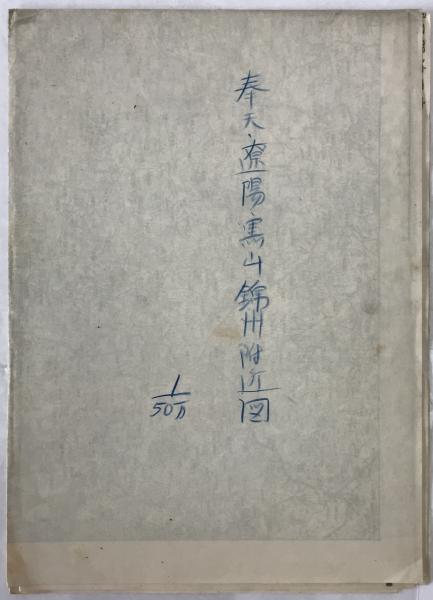 奉天、遼陽、黒山錦州附近図
1/50万